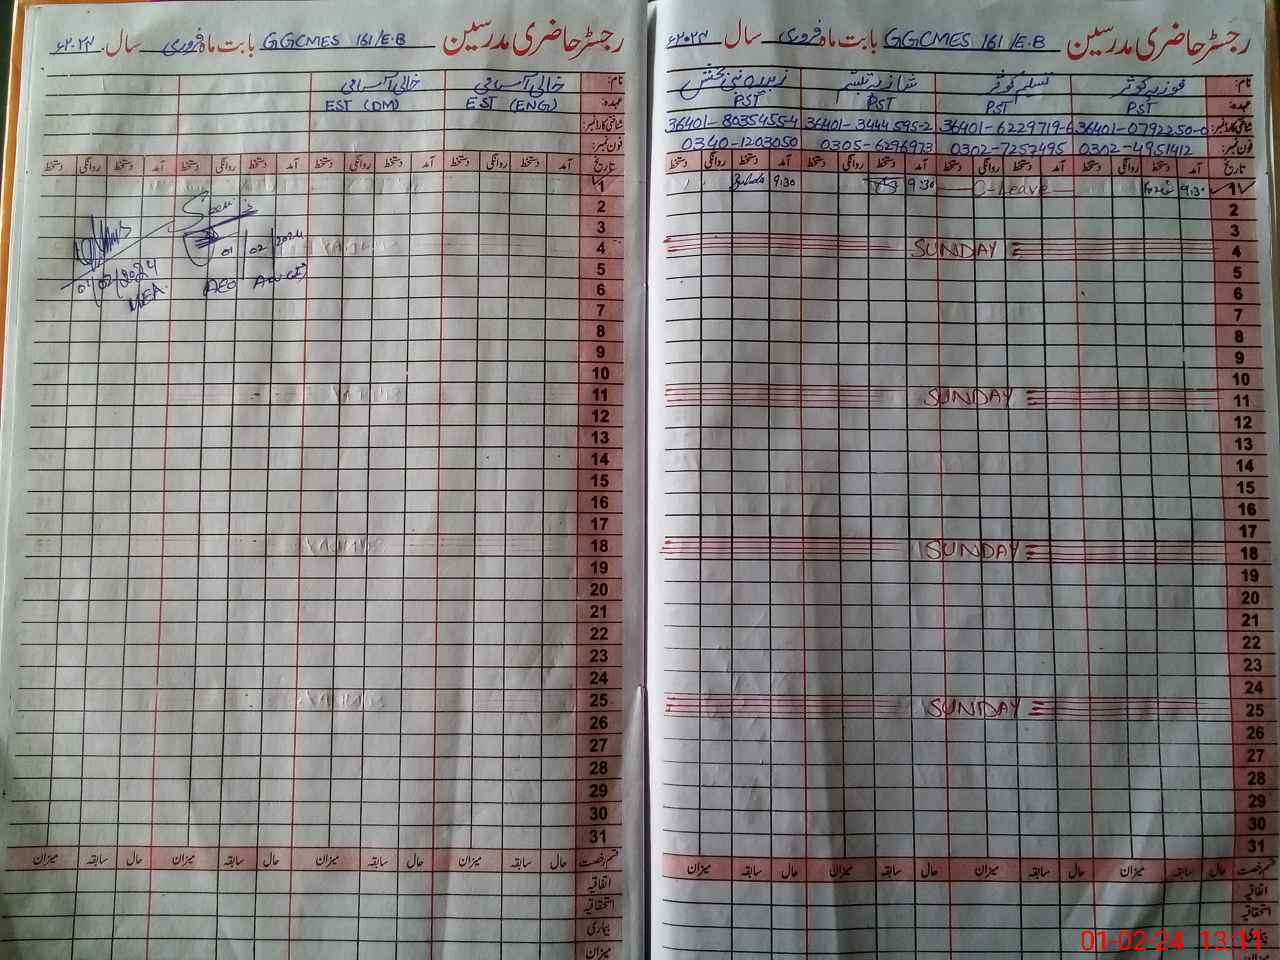 رجسٹر حاضری مدرسین GGCMES 161/E.B بابت ماہ فروری سال ۲۰۲۴ء
نام: فوزیہ کوثر نسیم کوثر شازیہ تبسّم زبیدہ نبی بخش
عہدہ: PST PST PST PST
شناختی کارڈ نمبر: 36401-0792250-0 36401-6229719-6 36401-3444595-2 36401-8035455-4
فون نمبر: 0302-4951412 0302-7257495 0305-6296973 0340-1203050
تاریخ آمد دستخط روانگی دستخط آمد دستخط روانگی دستخط آمد دستخط روانگی دستخط آمد دستخط روانگی دستخط
1 9:30 C-Leave 9:30 9:30
2
3
4 SUNDAY
5
6
7
8
9
10
11 SUNDAY
12
13
14
15
16
17
18 SUNDAY
19
20
21
22
23
24
25 SUNDAY
26
27
28
29
30
31
قسم رخصت حال سابقہ میزان حال سابقہ میزان حال سابقہ میزان حال سابقہ میزان
اتفاقیہ
استحقاقیہ
بیماری
میزان
01-02-24 13:11
رجسٹر حاضری مدرسین GGCMES 161/E.B بابت ماہ فروری سال ۲۰۲۴ء
نام: خالی آسامی خالی آسامی
عہدہ: EST (ENG) EST (DM)
شناختی کارڈ نمبر:
فون نمبر:
تاریخ آمد دستخط روانگی دستخط آمد دستخط روانگی دستخط آمد دستخط روانگی دستخط آمد دستخط روانگی دستخط
1
2
3
01 02 2024
4
5
01/02/2024
AEO
6
MEA
7
8
9
10
11
12
13
14
15
16
17
18
19
20
21
22
23
24
25
26
27
28
29
30
31
قسم رخصت حال سابقہ میزان حال سابقہ میزان حال سابقہ میزان حال سابقہ میزان
اتفاقیہ
استحقاقیہ
بیماری
میزان